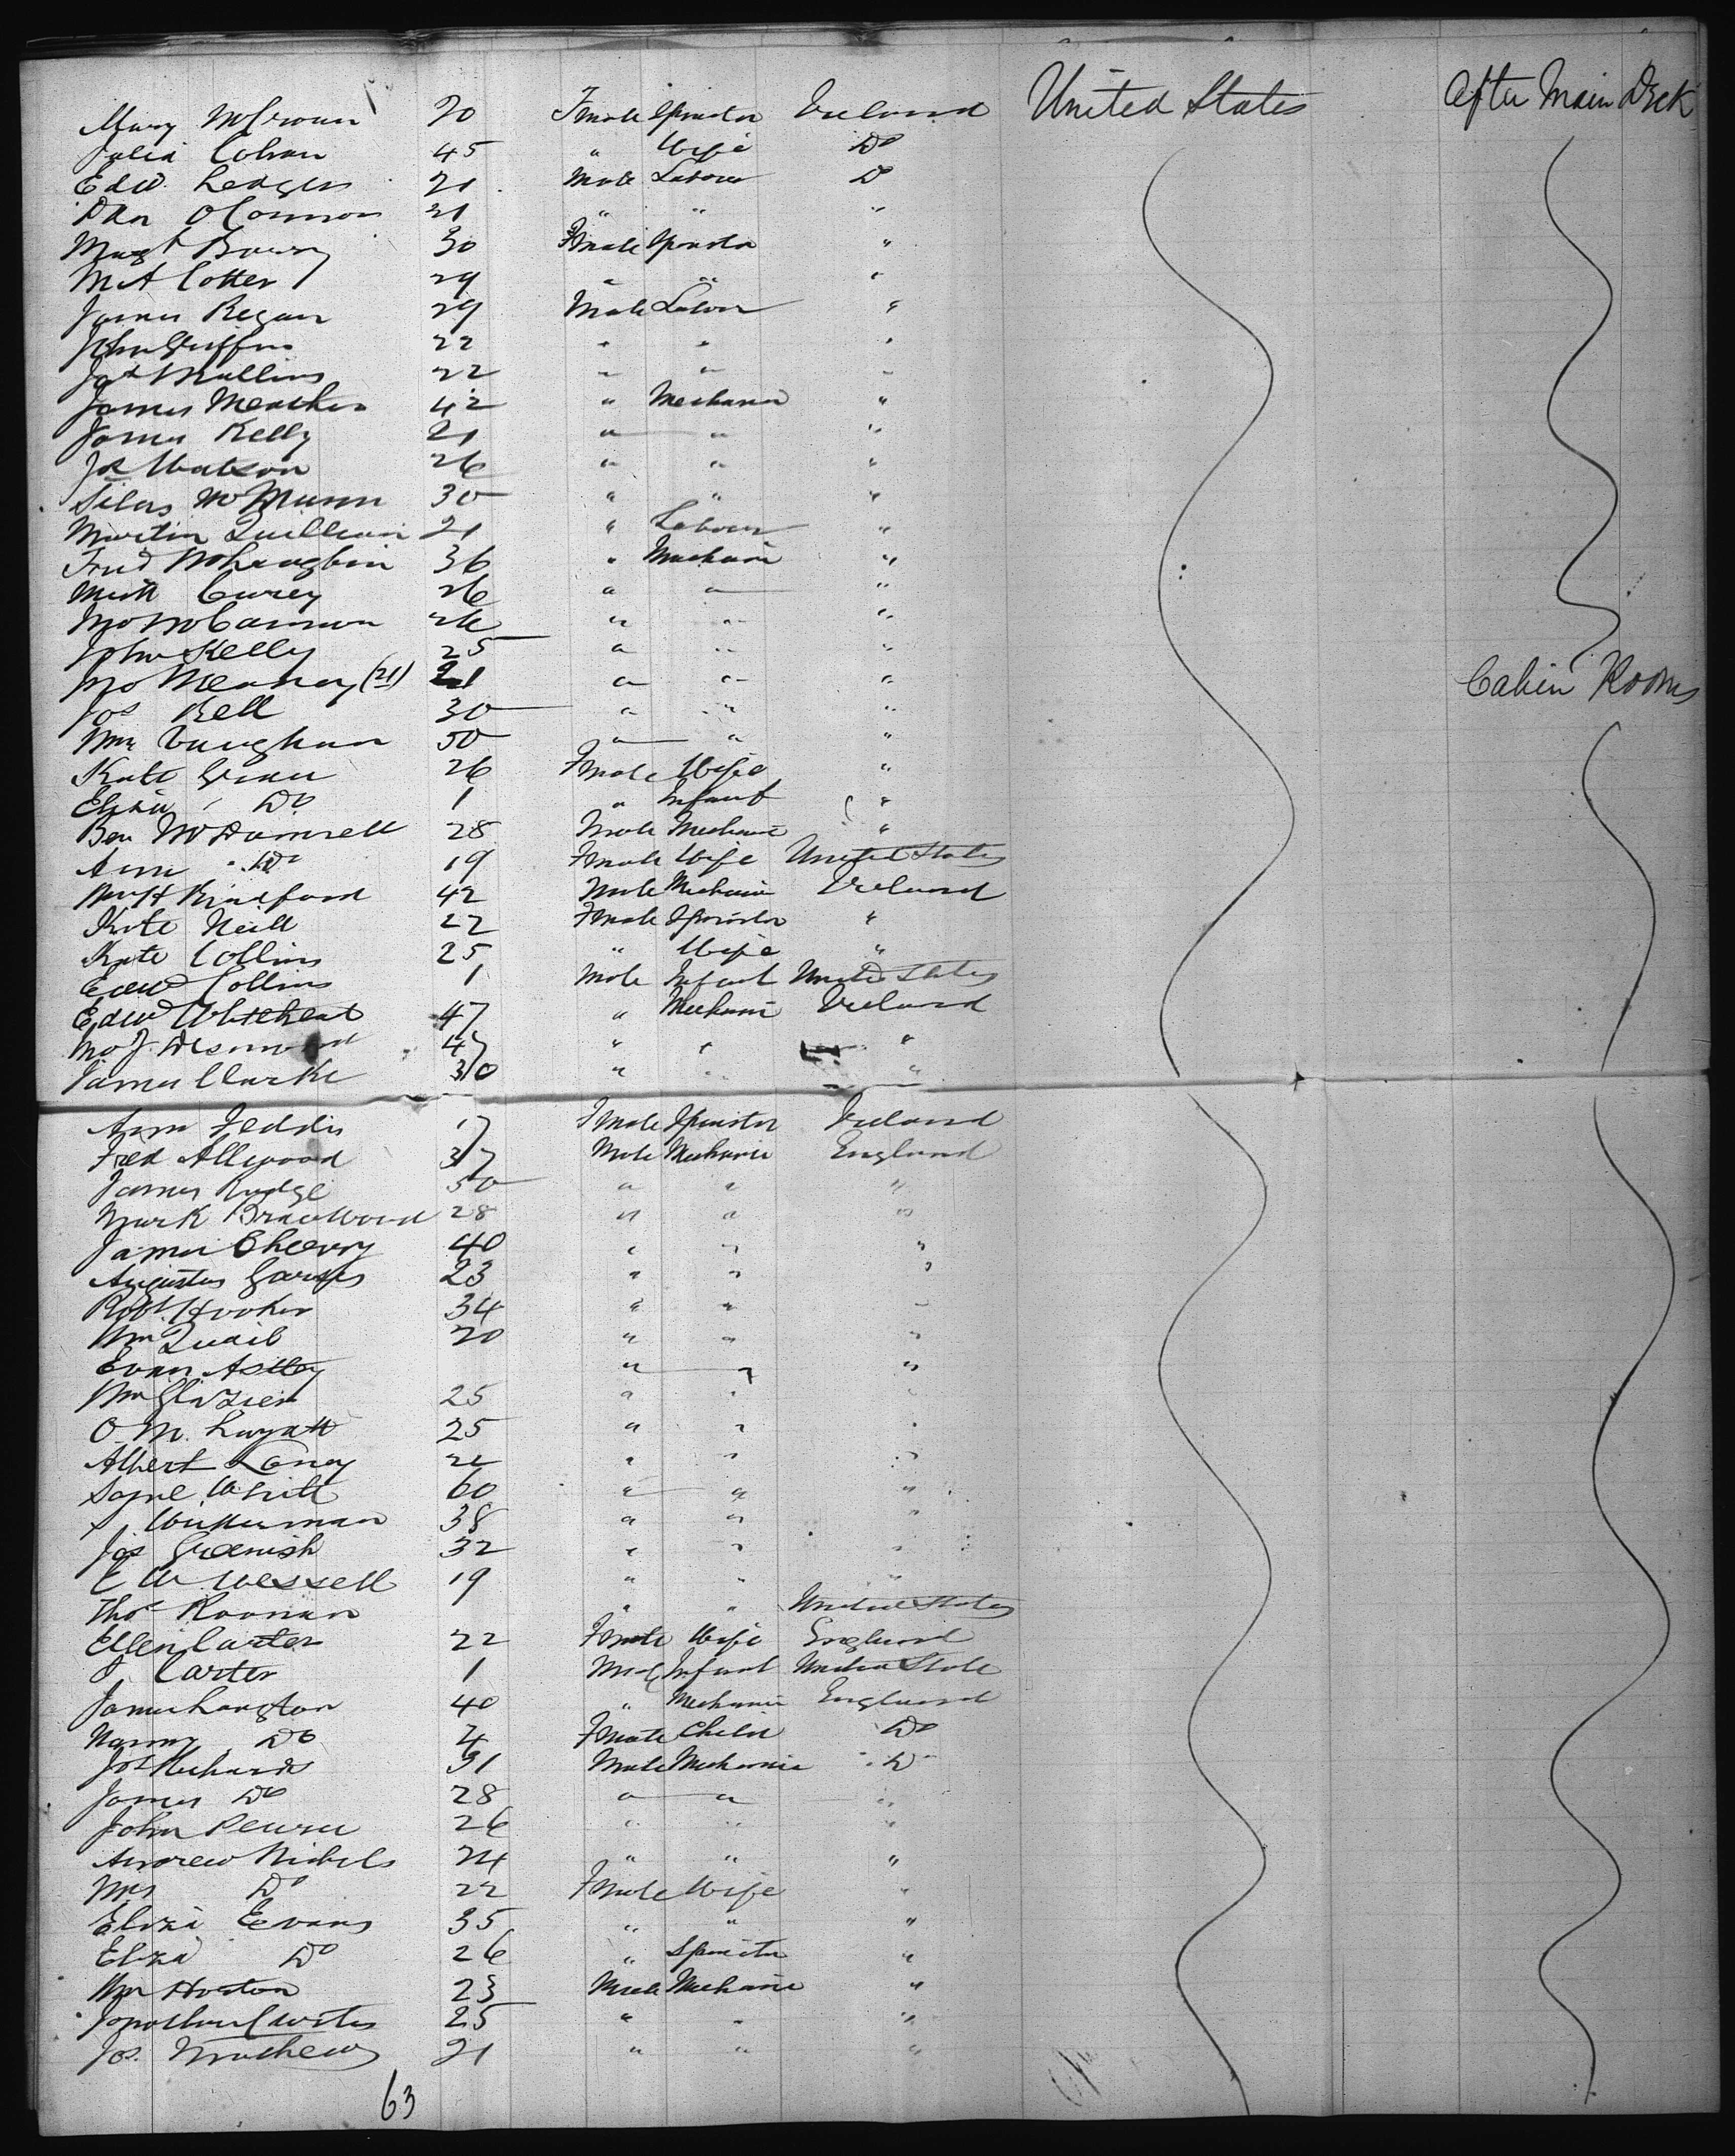 Mary McGowan 20 Fmale Spinster Ireland United States After Main Deck
Julia Cohan 45 " Wife Do
Edw. Ledger 21 Male Labour Do
Dan OConnor 21 " " "
Magt 30 Fmale Spinster "
M A Cotter 29 " " "
James Regan 29 Male Labour "
John Griffin 22 " " "
Jas Mullins 22 " " "
James Meacher 42 " Mechanic "
James Kelly 21 " " "
Js Watson 26 " " "
Silas McMunn 30 " " "
Martin Quillivan 21 " Labour "
Fred McLaughlin 36 " Mechanic "
Curey 26 " " "
26 " " "
John Kelly 25 " " "
Jno (21) 21 " " " Cabin Rooms
Jos Bell 30 " " "
Wm Vaughan 50 " " "
Kate 26 Fmale Wife "
Eliza " Do 1 " Infant "
Ben McDonnell 28 Male Mechanic "
Ann " Do 19 Fmale Wife United States
Wm H 42 Male Mechanic Ireland
Kate Neill 22 Fmale Spinster "
Kate Collins 25 " Wife "
Edwd Collins 1 Male Infant United States
Edwd Whitehead 47 " Mechanic Ireland
J. Desmond 47 " " "
James Clarke 30 " " "
Ann Feddis 17 Fmale Spinster Ireland
Fred Allwood 37 Male Mechanic England
James Rudge 50 " " "
Mark Bradwood 28 " " "
James Cheevry 40 " " "
Augustus 23 " " "
Robt. Hooker 34 " " "
Wm Quail 20 " " "
Evan Astley " " "
Wm Glazier 25 " " "
O. M. 25 " " "
Albert Laney 22 " " "
Saml White 60 " " "
38 " " "
Jos Greenish 32 " " "
E W Wessell 19 " " "
Thos Roonan " " United States
Ellen Carter 22 Fmale Wife England
J Carter 1 Male Infant United State
James Langton 40 " Mechanic England
Nanny Do 4 Fmale Child Do
Jos Richards 31 Male Mechanic " Do
James Do 28 " " "
John 26 " " "
Andrew Nichols 24 " " "
Mrs Do 22 Fmale Wife "
Eliza Evans 35 " " "
Eliza Do 26 " Spinster "
Wm Horton 23 Male Mechanic "
Jonathan Curtis 25 " " "
Jos. Mathews 21 " " "
63